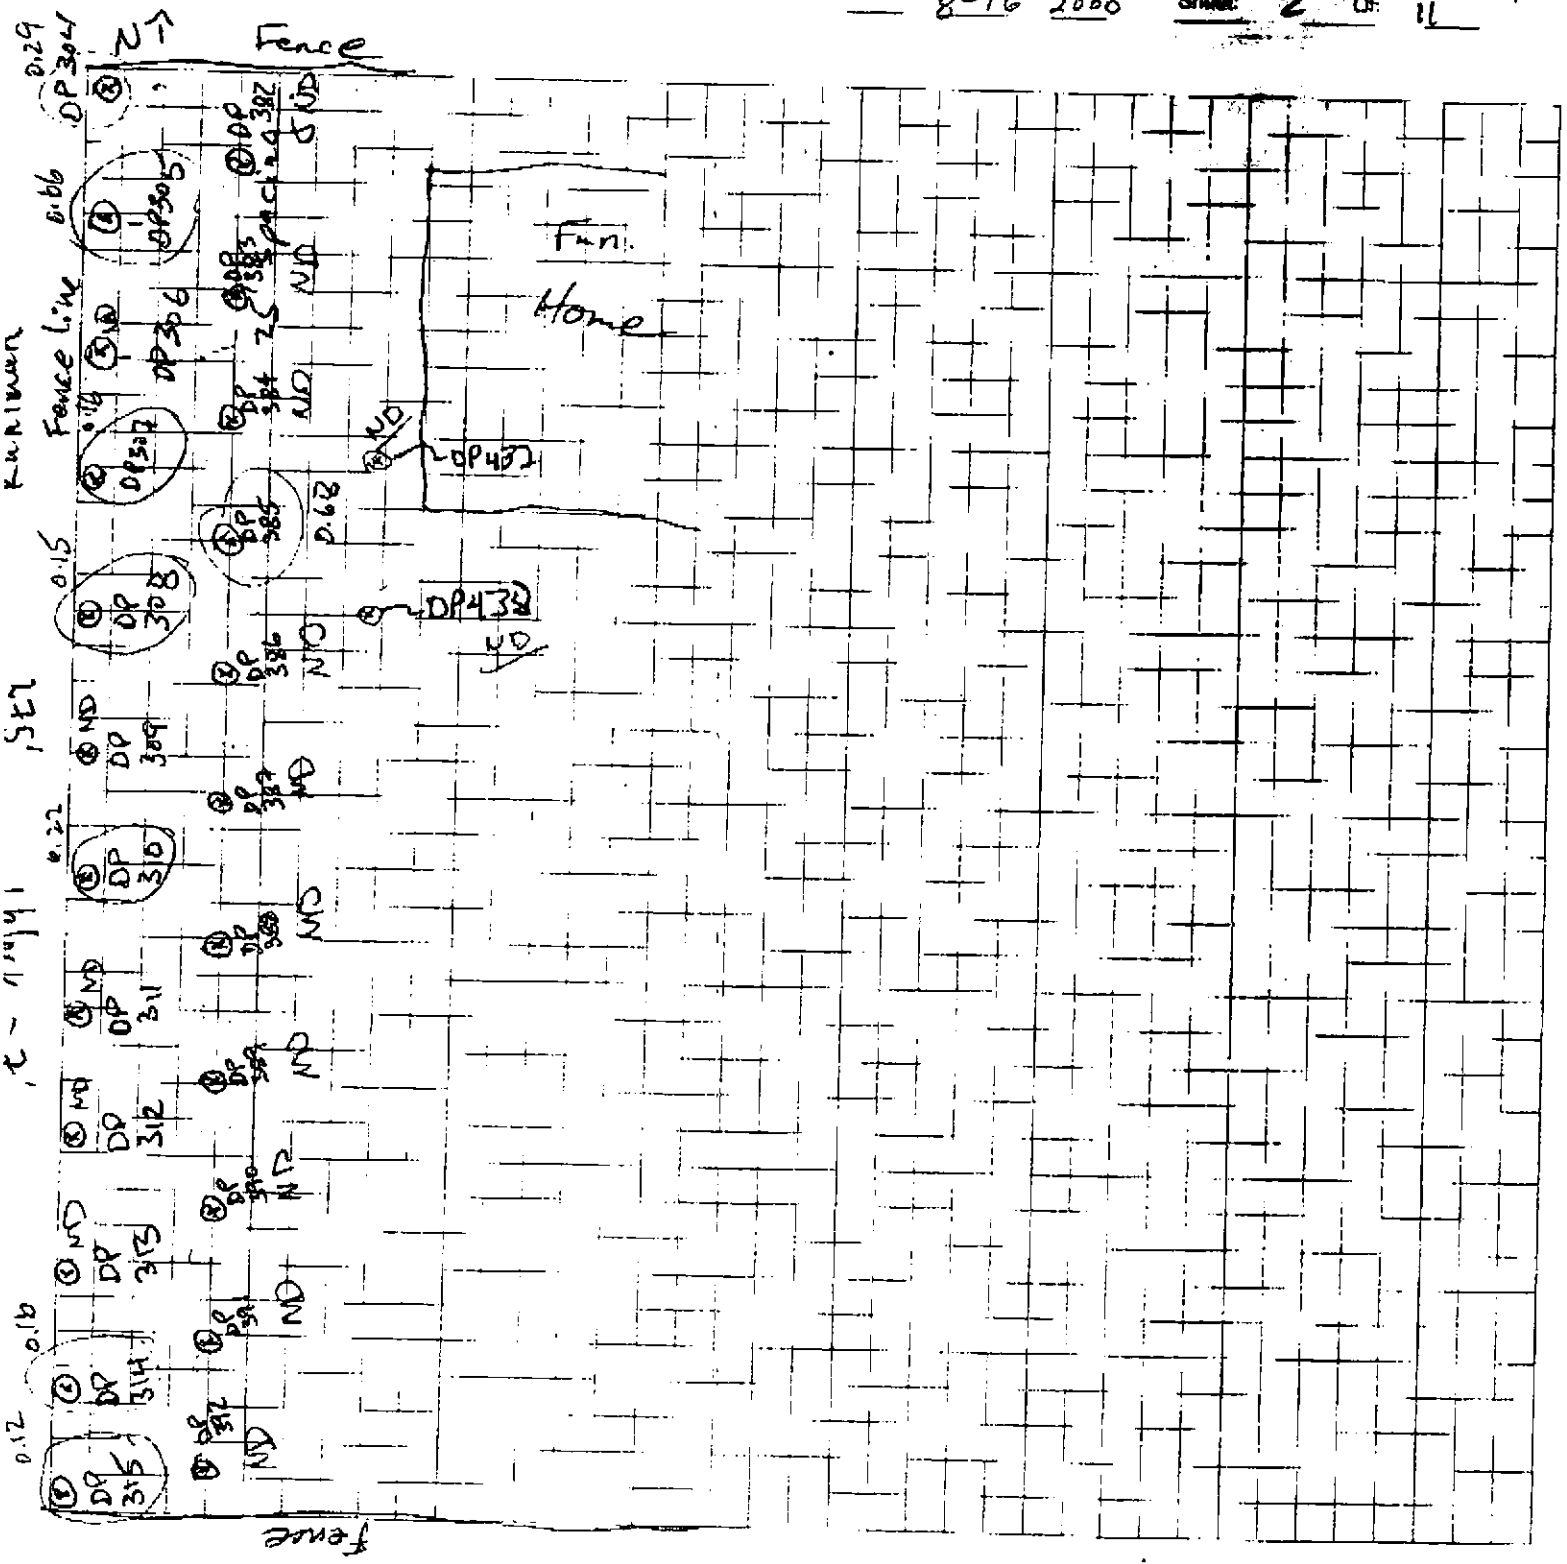 8-16 2000 Sheet 2 Of 11
N→
Fence
0.29
DP304
0.66
DP305
Fence line
ND
DP306
0.16
DP307
0.15
DP
308
ND
DP
309
0.22
DP
310
ND
DP
311
ND
DP
312
ND
DP
313
0.16
DP
314
0.12
DP
315
DP
382
ND
DP
383
ND
25' spacing
DP
384
ND
DP
385
0.68
DP
386
ND
DP
387
ND
DP
388
ND
DP
389
ND
DP
390
ND
DP
391
ND
DP
392
ND
ND
DP437
DP438
ND
Fun.
Home
Fence